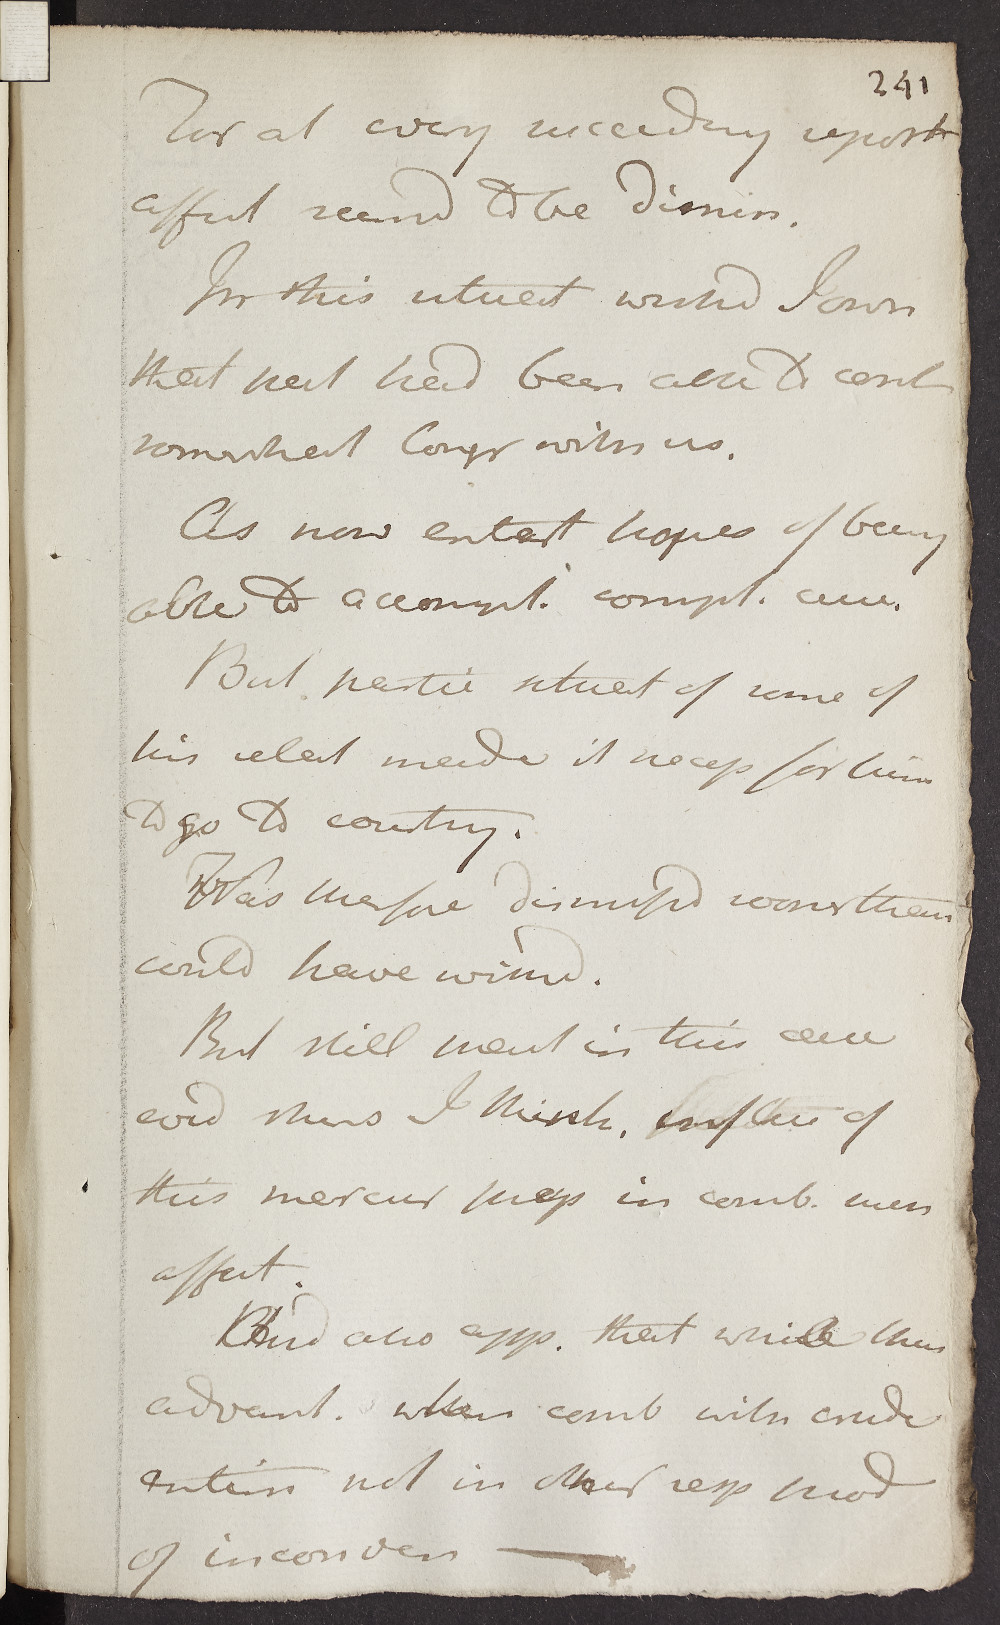 241
For at every succeeding report
affect seemd to be dimin.
In this situat wishd I own
that pat had been able to cont
somewhat longr with us.
As now entert hopes of being
able to accompl. compl. cure.
But partic situat of some of
his relat made it necess for him
to go to country.
Was therfore dismissd sooner than
could have wishd.
But still treat in this case
evid shews I think, influe of
this mercur prep in comb. such
affect.
And also app. that while thus
advant. when comb with crude
antim not in other resp prod
of inconven